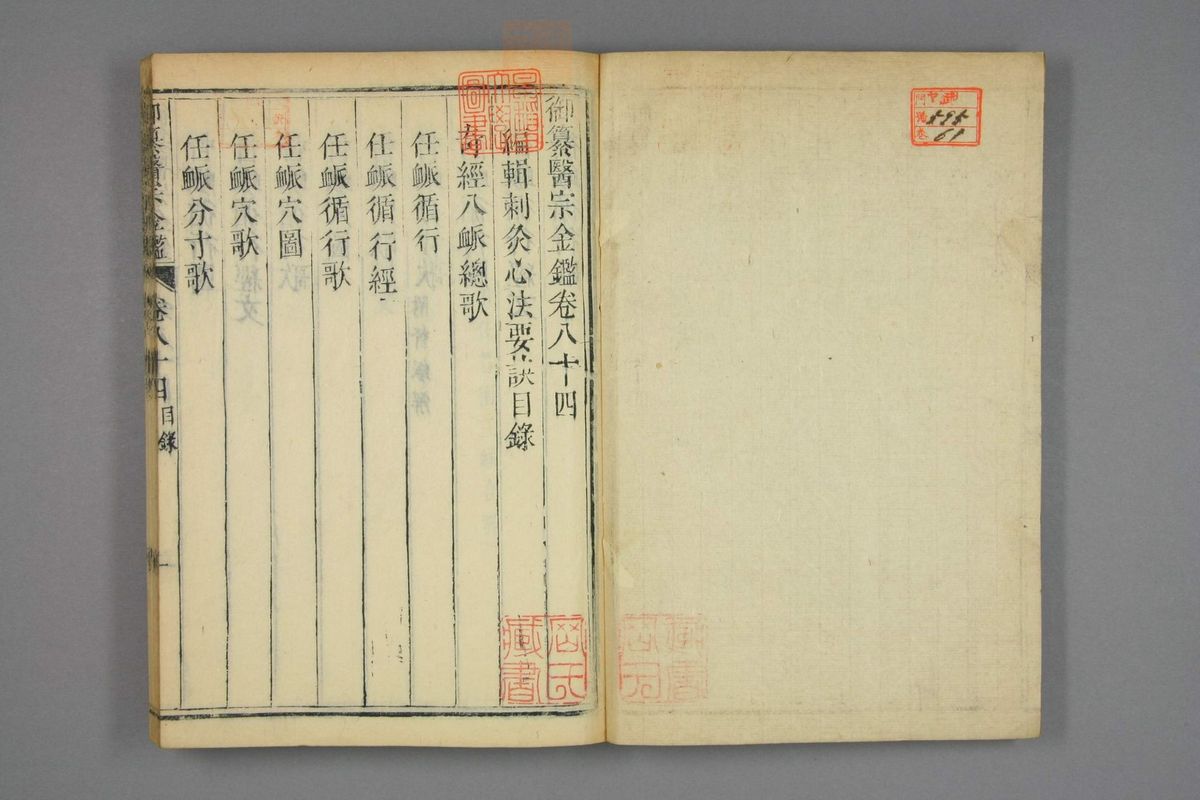 御纂醫宗金鑑卷八十四
編輯刺灸心法要訣目錄
奇經八脈總歌
任脈循行
任脈循行經
任脈循行歌
任脈穴圖
任脈穴歌
任脈分寸歌
御纂醫宗金鑑 卷八十四 目錄 一
早稻田大學圖書
藏書